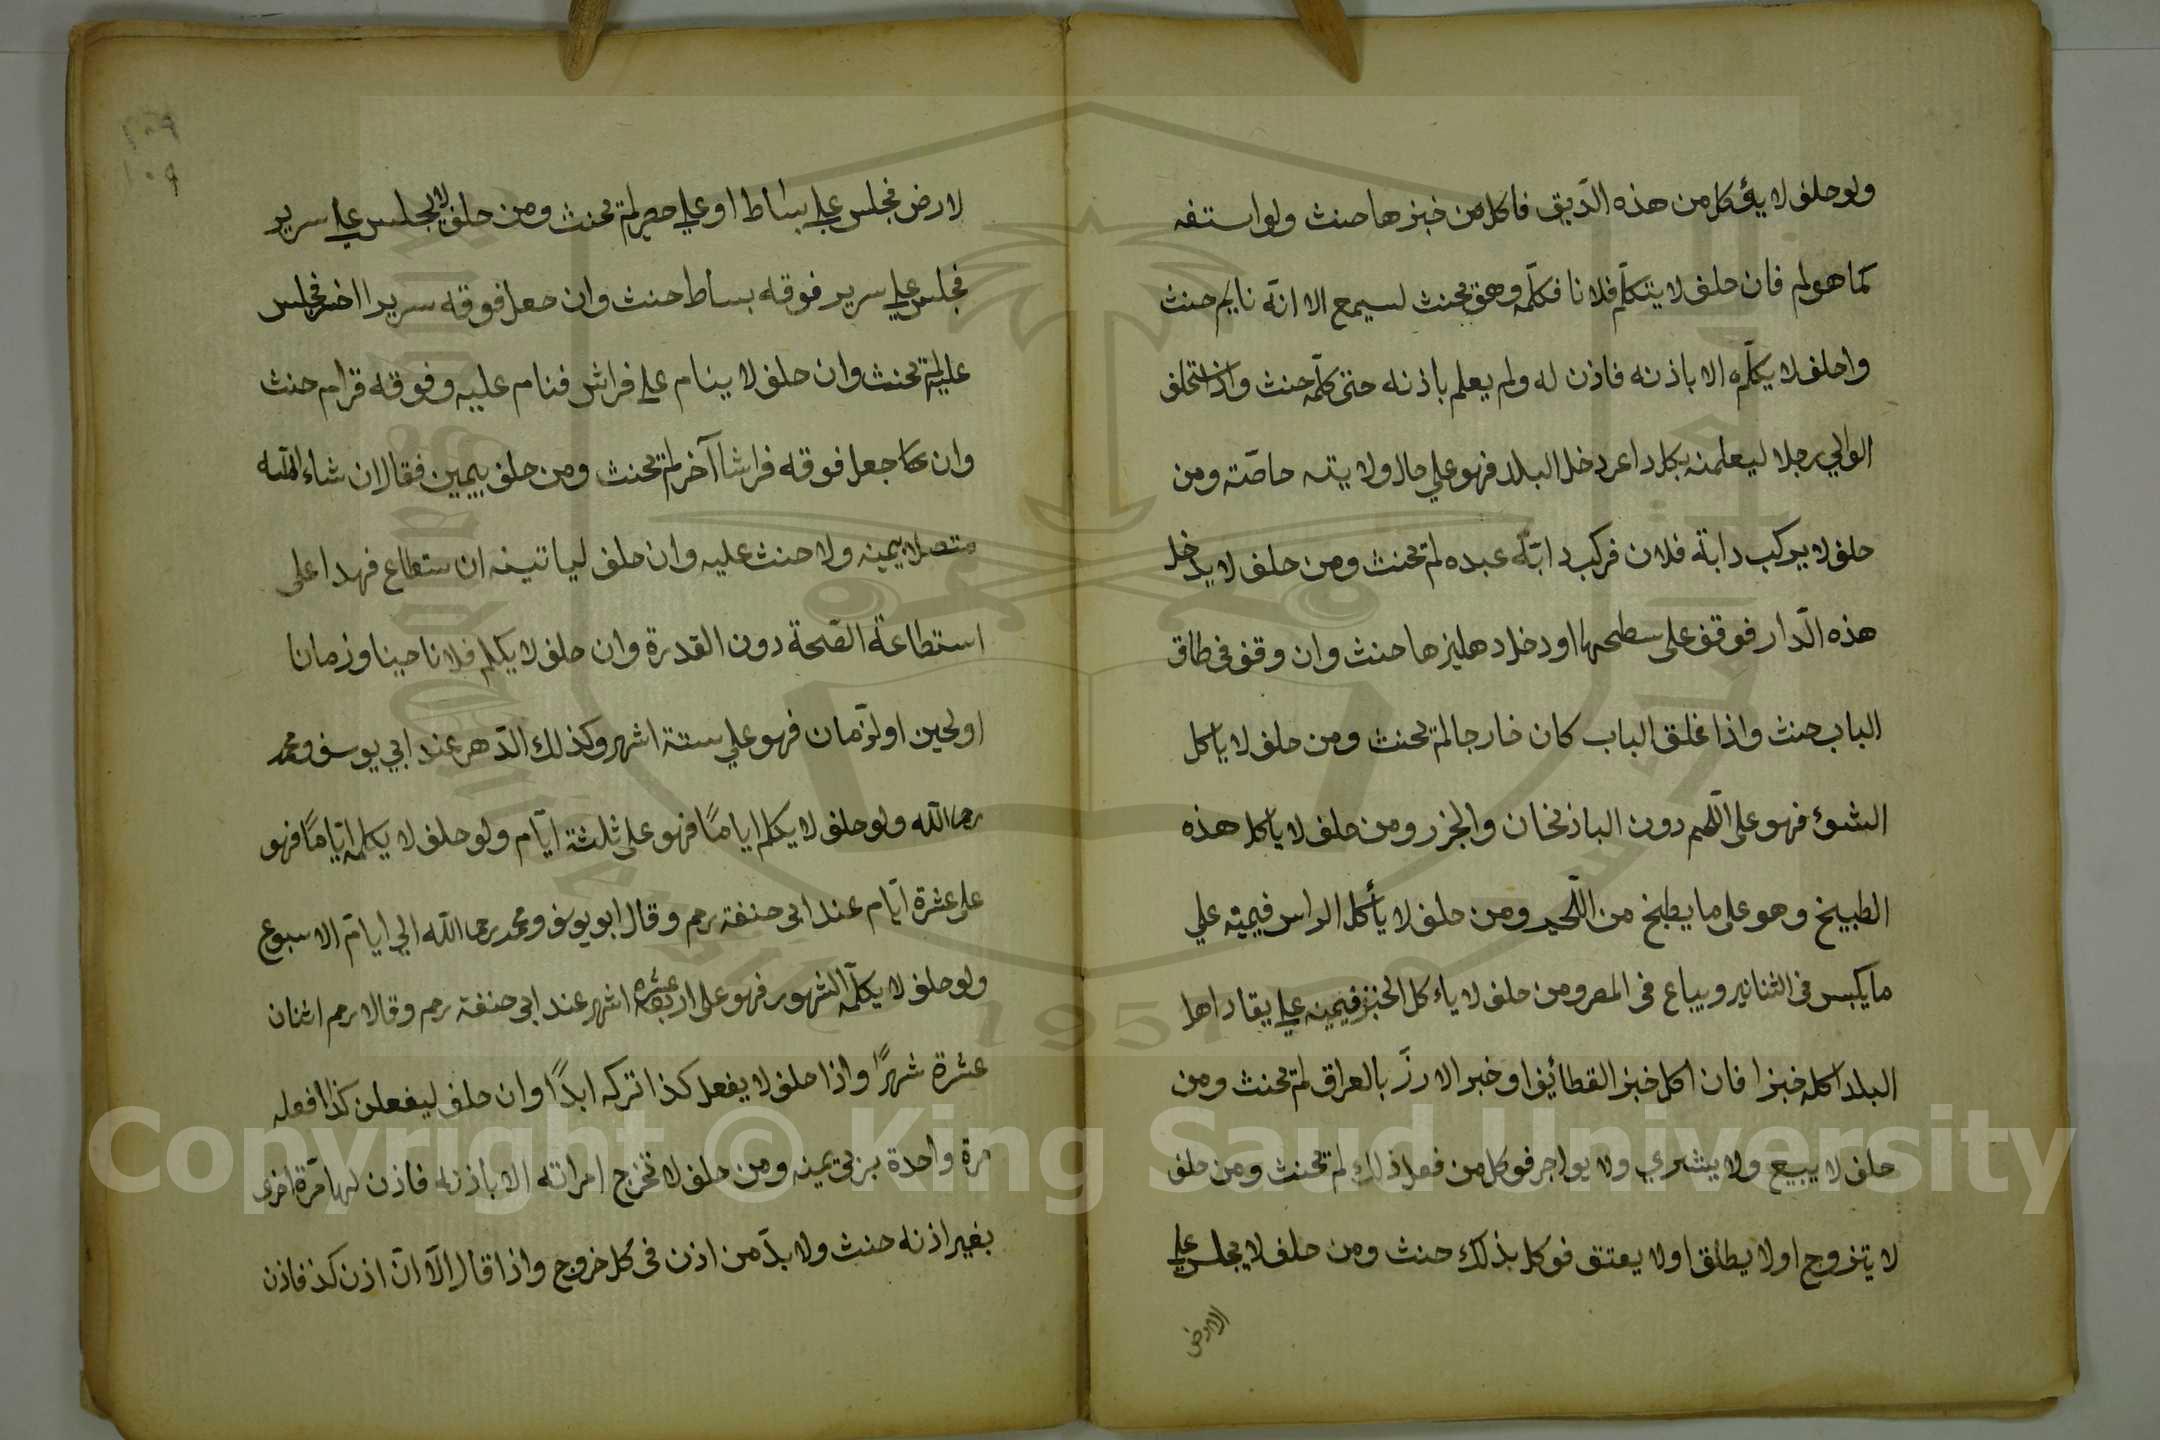 ولو حلف لا يؤكل من هذه الدّيق فاكل من خبزها حنث ولو استفه
كما هو لم فان حلف لا يتكلّم فلانا فكلّمه وهو بحنث لسيمع الا انّه نايم حنث
واحلف لا يكلّمه الا باذنه فاذن له ولم يعلم باذنه حتى كلّمه حنث واذا ستحلف
الوالي رجلا ليعلمنه بكل داعر دخل البلد فهو علي حال ولايته حاصّة ومن
حلف لا يركب دابة فلان فركب دابّة عبده لم يحنث ومن حلف لا يدخل
هذه الدّار فوقف على سطحها او دخل دهليزها حنث وان وقف في طاق
الباب حنث واذا غلق الباب كان خارجا لم يحنث ومن حلف لا ياكل
الشوئ فهو على اللّحم دون الباذنجان والجزر ومن حلف لا ياكل هذه
الطبيخ وهو على ما يطبخ من اللّحم ومن حلف لا يأكل الراس فيمينه علي
ما يكبس في الثنانير ويباع في المصر ومن حلف لا ياءكل الخبز فيمينه علي يقاد اهل
البلد اكله خبزا فان اكل خبز القطائف او خبر الارزّ بالعراق لم يحنث ومن
حلف لا يبيع ولا يشري ولا يواجر فوكل من فعل ذلك لم يحنث ومن حلف
لا يتزوج او لا يطلق او لا يعتق فوكل بذلك حنث ومن حلف لا يجلس علي
الارض
لارض فجلس علي بساط او علي حصير لم يحنث ومن حلف لا يجلس علي سرير
فجلس علي سرير فوقه بساط حنث وان جعل فوقه سريرا اخر فجلس
عليه لم يحنث وان حلف لا ينام علي فراش فنام عليه وفوقه قرام حنث
وان جعل فوقه فراشا آخر لم يحنث ومن حلف بيمين فقال ان شاء اللّه
متصلا بيمينه ولا حنث عليه وان حلف لياتينه ان ستطاع فهدا على
استطاعة الصّحة دون القدرة وان حلف لا يكلم فلانا حينا وزمانا
او لحين او لزّمان فهو علي ستة اشهر وكذلك الدّهر عند ابي يوسف ومحمد
رحما اللّه ولو حلف لا يكلم اياماً فهو على ثلثة ايّام ولو حلف لا يكلمه ايّاماً فهو
على عشرة ايّام عند ابي حنفة رحم وقال ابو يوسف ومحمد رحما اللّه الي ايّام الاسبوع
ولو حلف لا يكلّمه الشهور فهو على اربعة عشرة اشهر عند ابي حنفة رحم وقالا رحم اثنان
عشرة شهراً واذا حلف لا يفعل كذا تركه ابداً وان حلف ليفعلن كذا فعله
مرة واحدة بر في يمينه ومن حلف لا تخرج امراته الا باذنه فاذن لها مرّة اخرى
بغير اذنه حنث ولا بدّ من اذن في كل خروج واذا قال الّا انّ اذن كذ فاذن
٢٠٩
١٠٩
Copyright © King Saud University
1957